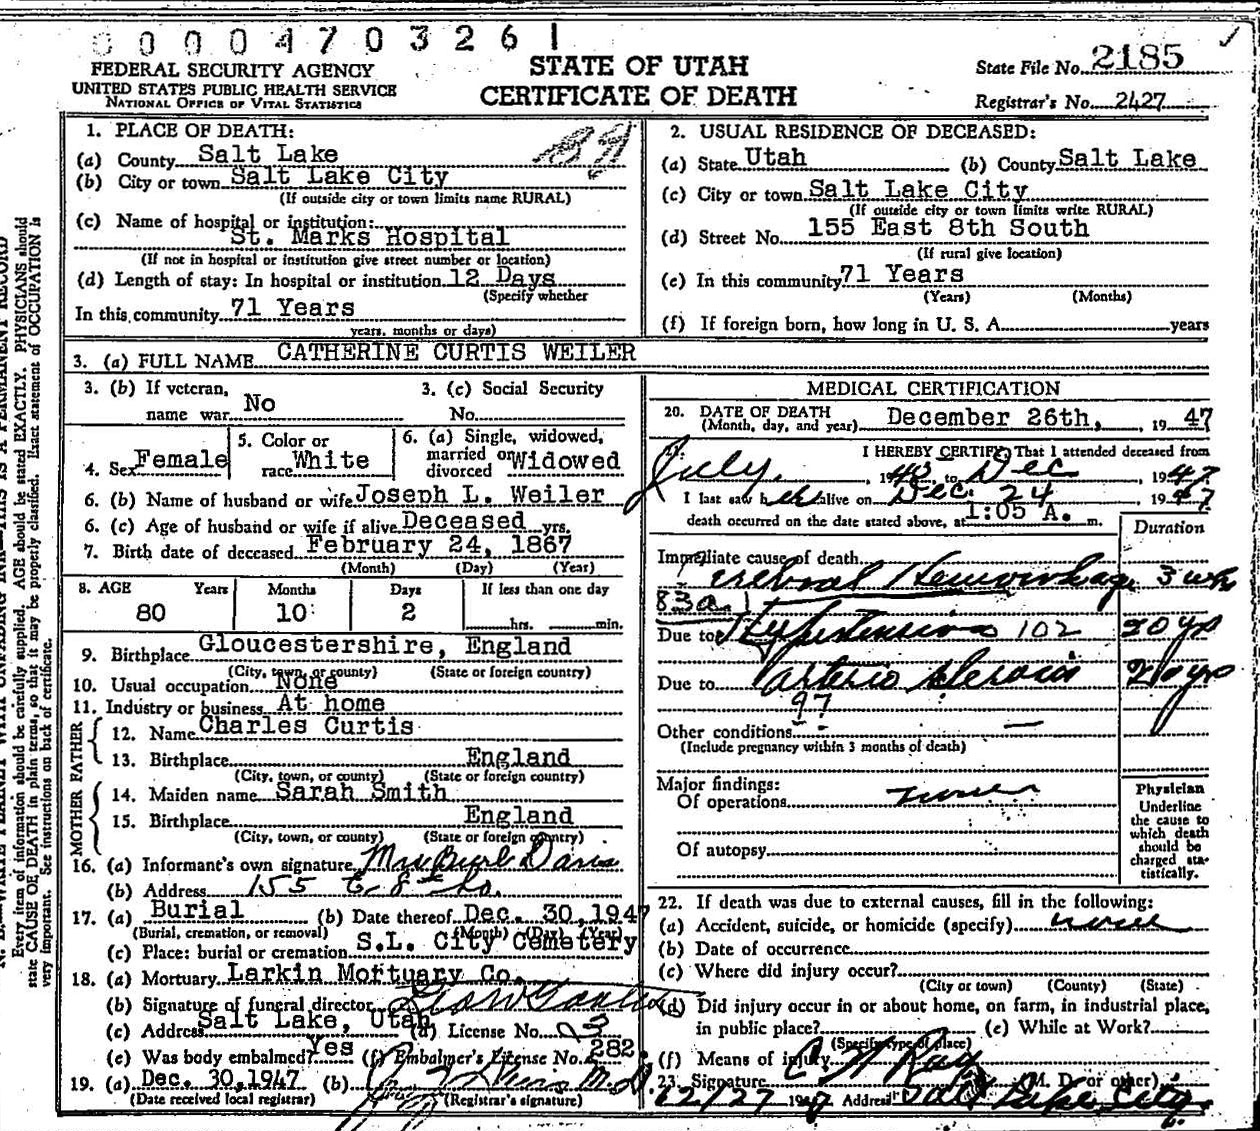 00004703261
FEDERAL SECURITY AGENCY
UNITED STATES PUBLIC HEALTH SERVICE
NATIONAL OFFICE OF VITAL STATISTICS
STATE OF UTAH
CERTIFICATE OF DEATH
State File No. 2185
Registrar's No. 2427
1. PLACE OF DEATH:
(a) County Salt Lake
(b) City or town Salt Lake City
(If outside city or town limits name RURAL)
(c) Name of hospital or institution:
St. Marks Hospital
(If not in hospital or institution give street number or location)
(d) Length of stay: In hospital or institution 12 Days
(Specify whether
In this community 71 Years
years, months or days)
2. USUAL RESIDENCE OF DECEASED:
(a) State Utah (b) County Salt Lake
(c) City or town Salt Lake City
(If outside city or town limits write RURAL)
(d) Street No. 155 East 8th South
(If rural give location)
(e) In this community 71 Years
(Years) (Months)
(f) If foreign born, how long in U. S. A. years
3. (a) FULL NAME CATHERINE CURTIS WEILER
3. (b) If veteran, name war No
3. (c) Social Security No.
4. Sex Female
5. Color or race White
6. (a) Single, widowed, married or divorced Widowed
6. (b) Name of husband or wife Joseph L. Weiler
6. (c) Age of husband or wife if alive Deceased yrs.
7. Birth date of deceased February 24, 1867
(Month) (Day) (Year)
8. AGE Years Months Days If less than one day
80 10 2 hrs. min.
9. Birthplace Gloucestershire, England
(City, town, or county) (State or foreign country)
10. Usual occupation None
11. Industry or business At home
FATHER
12. Name Charles Curtis
13. Birthplace England
(City, town, or county) (State or foreign country)
MOTHER
14. Maiden name Sarah Smith
15. Birthplace England
(City, town, or county) (State or foreign country)
16. (a) Informant's own signature Mrs Burl Davis
(b) Address 155 E. 8th So.
17. (a) Burial (b) Date thereof Dec. 30, 1947
(Burial, cremation, or removal) (Month) (Day) (Year)
(c) Place: burial or cremation S.L. City Cemetery
18. (a) Mortuary Larkin Mortuary Co.
(b) Signature of funeral director
(c) Address Salt Lake, Utah (d) License No.
(e) Was body embalmed? Yes (f) Embalmer's License No. 282
19. (a) Dec. 30, 1947 (b)
(Date received local registrar) (Registrar's signature)
MEDICAL CERTIFICATION
20. DATE OF DEATH December 26th, , 19 47
(Month, day, and year)
21. I HEREBY CERTIFY That I attended deceased from
July, to Dec , 1947
I last saw her alive on Dec. 24 1947
death occurred on the date stated above, at 1:05 A. m.
Duration
Immediate cause of death
Cerebral Hemorrhage 3 wks
83a.1
Due to Hypertension 102 20 yrs
Due to arterio sclerosis 20 yrs
97
Other conditions —
(Include pregnancy within 3 months of death)
Major findings:
Of operations none
Of autopsy
Physician
Underline the cause to which death should be charged statistically.
22. If death was due to external causes, fill in the following:
(a) Accident, suicide, or homicide (specify) none
(b) Date of occurrence
(c) Where did injury occur?
(City or town) (County) (State)
(d) Did injury occur in or about home, on farm, in industrial place,
in public place? (e) While at Work?
(Specify type of place)
(f) Means of injury
23. Signature (M. D. or other)
12/27 1947 Address Salt Lake City
Every item of information should be carefully supplied. AGE should be stated EXACTLY. PHYSICIANS should
state CAUSE OF DEATH in plain terms, so that it may be properly classified. Exact statement of OCCUPATION is
very important. See instructions on back of certificate.